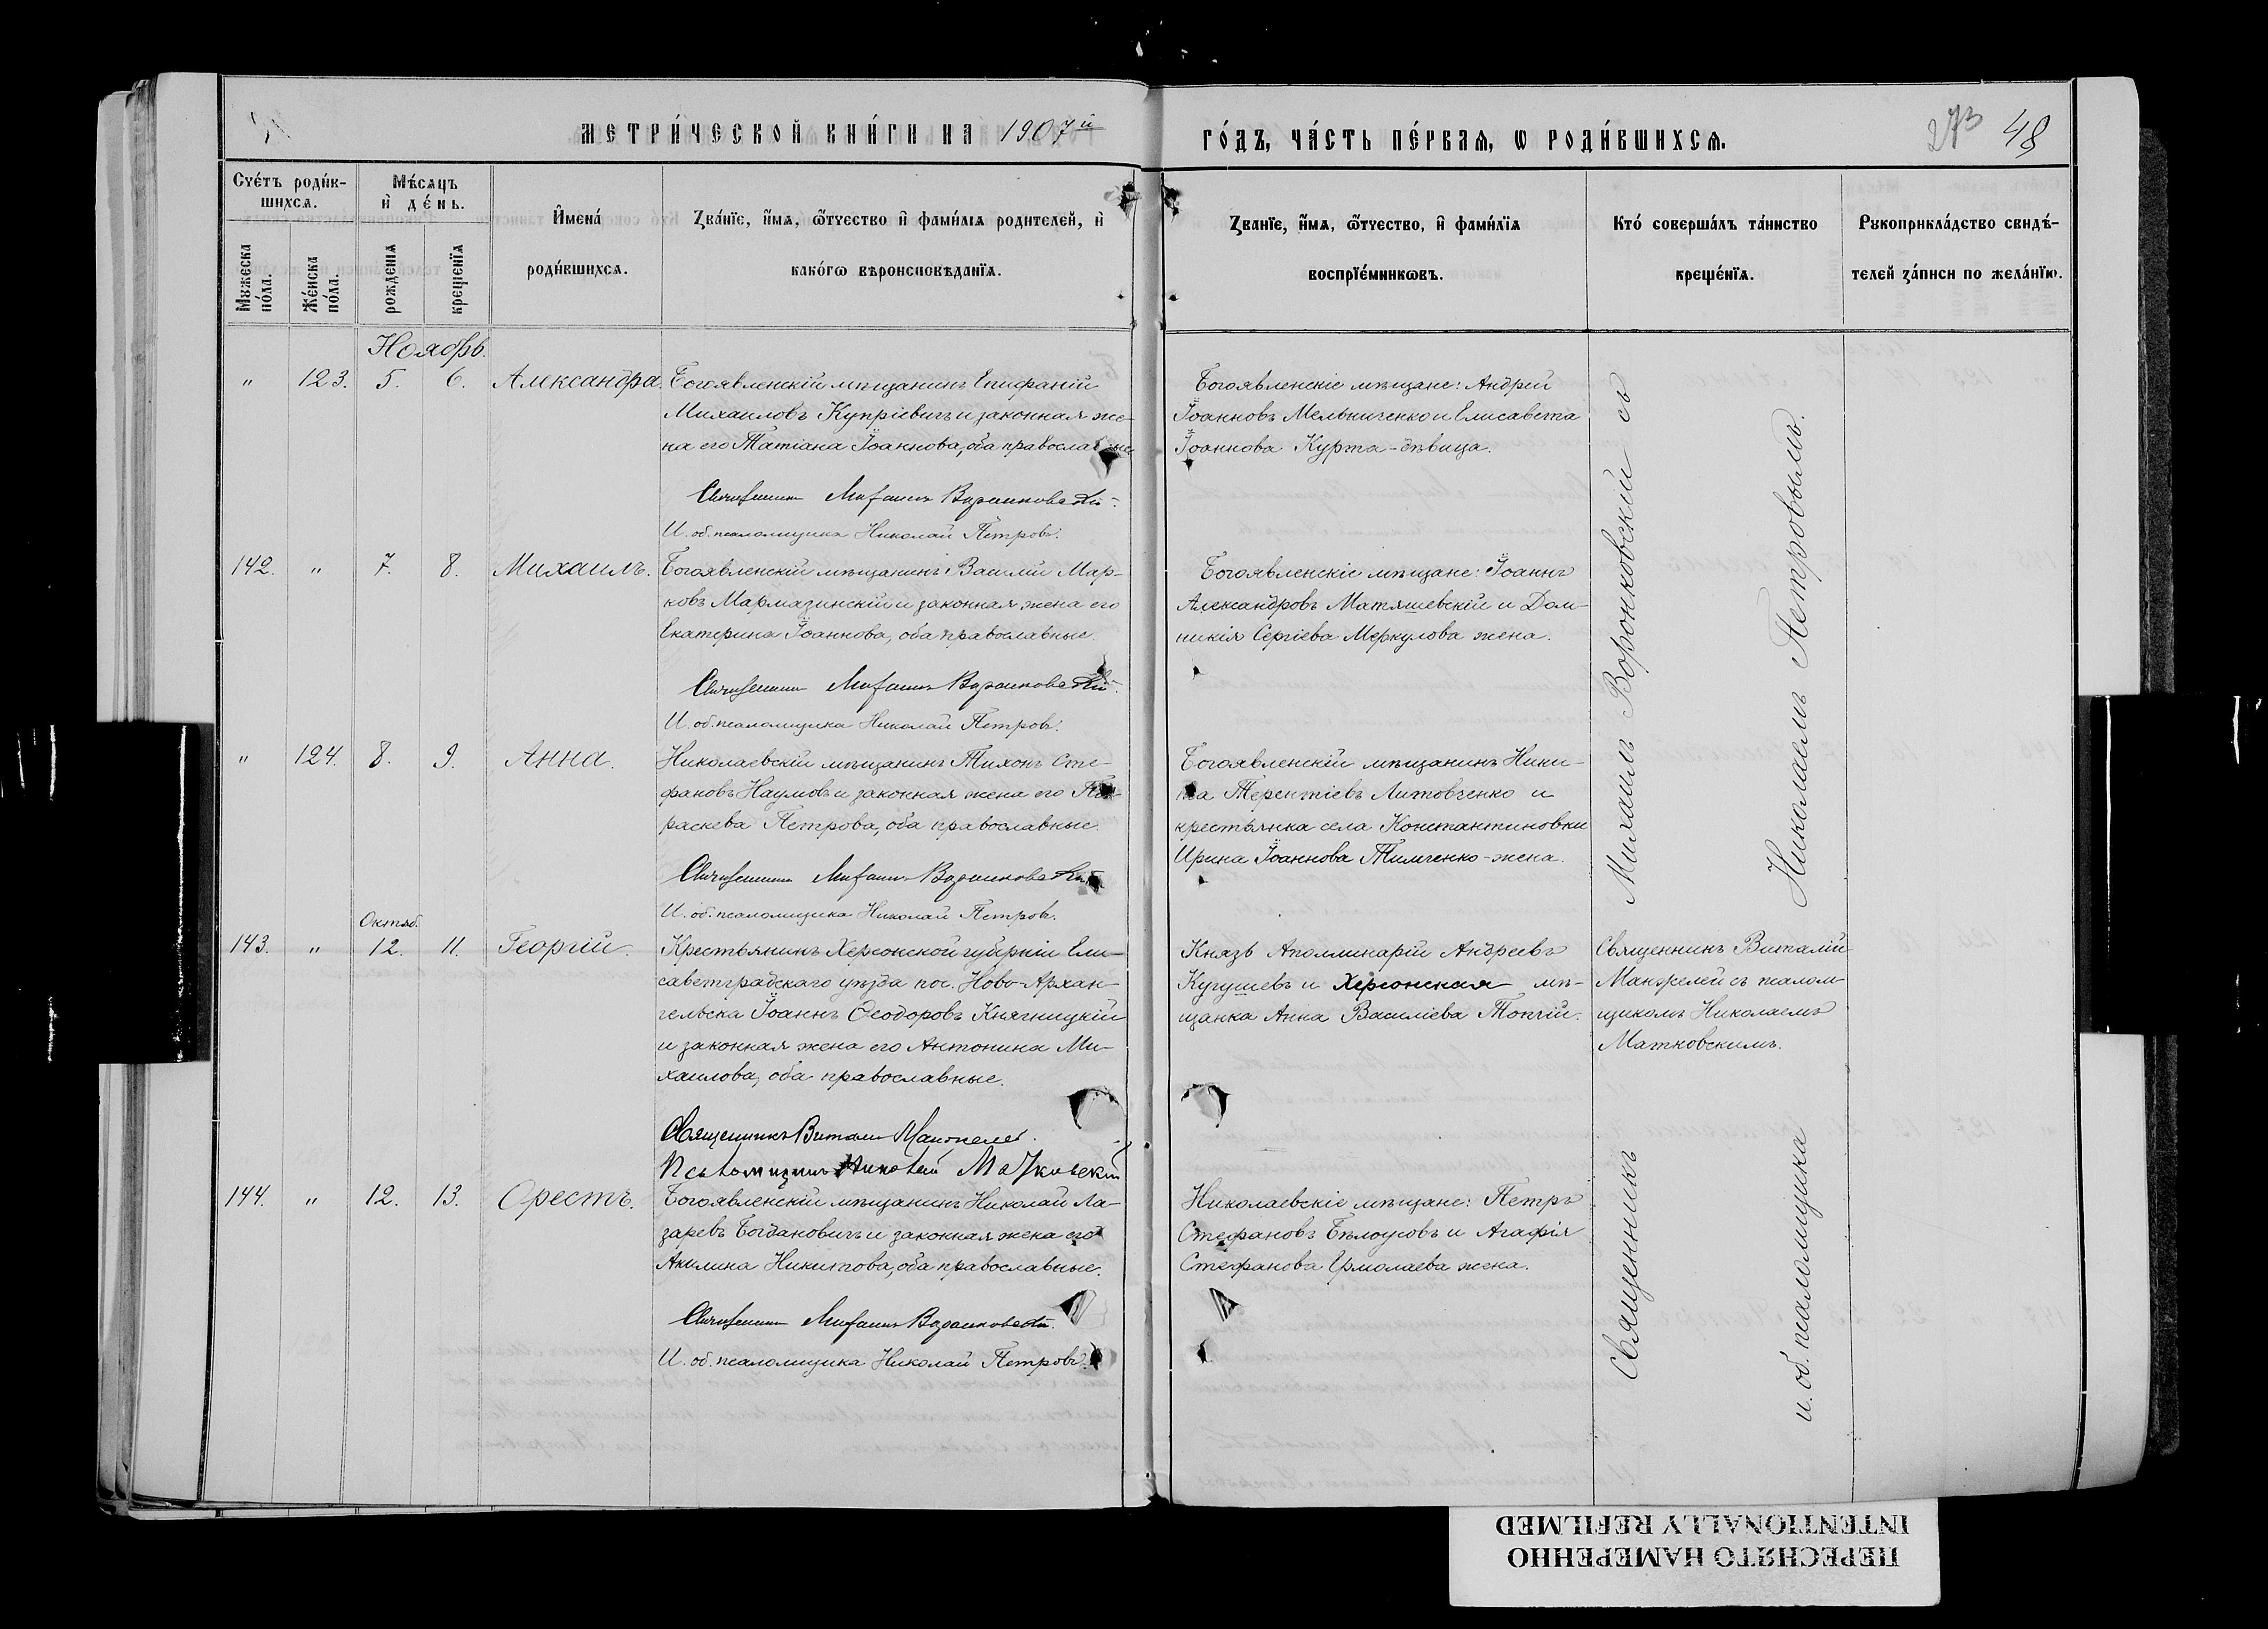 МЕТРИ́ЧЕСКОЙ КНИ́ГИ НА 1907й
ГО́ДЪ, ЧА́СТЬ ПЕ́РВАѦ, Ѡ РОДИ́ВШИХСѦ.
273 48
Счéтъ роди́в-
шихсѧ.
Мѣ́сѧцъ
и҆ де́нь.
И҆мена́
роди́вшихсѧ.
Зва́нїе, и҆́мѧ, ѻ҆́тчество и҆ фами́лїѧ родителей, и҆
како́гѡ вѣроисповѣданїѧ.
Зва́нїе, и҆́мѧ, ѻ҆́тчество, и҆ фами́лїѧ
воспрїе́мникѡвъ.
Кто́ соверша́лъ та́инство
креще́нїѧ.
Рукоприкла́дство свидѣ́-
телей за́писи по жела́нїю.
Мужеска
по́ла.
Же́нска
по́ла.
рожденїѧ
крещенїѧ
Ноябрь.
" 123. 5. 6. Александра.
Богоявленскій мѣщанинъ Епифаній
Михаиловъ Купріевичъ и законная же-
на его Татіана Іоаннова, оба православные
Священникъ Михаилъ Воронковскій.
И. об. псаломщика Николай Петровъ.
Богоявленскіе мѣщане: Андрей
Іоанновъ Мельниченко и Елисавета
Іоаннова Курта-дѣвица.
142. " 7. 8. Михаилъ.
Богоявленскій мѣщанинъ Василій Мар-
ковъ Мармазинскій и законная жена его
Екатерина Іоаннова, оба православные.
Священникъ Михаилъ Воронковскій.
И. об. псаломщика Николай Петровъ.
Богоявленскіе мѣщане: Іоаннъ
Александровъ Матяшевскій и Дом-
никія Сергіева Меркулова жена.
" 124. 8. 9. Анна.
Николаевскій мѣщанинъ Тихонъ Сте-
фановъ Наумовъ и законная жена его Па-
раскева Петрова, оба православные.
Священникъ Михаилъ Воронковскій
И. об. псаломщика Николай Петровъ.
Богоявленскій мѣщанинъ Ники-
та Терентіевъ Литовченко и
крестьянка села Константиновки
Ирина Іоаннова Тимченко-жена.
Октяб.
143. " 12. 11. Георгій.
Крестьянинъ Херсонской губерніи Ели-
саветградскаго уѣзда пос. Ново-Архан-
гельска Іоаннъ Ѳеодоровъ Княгницкій
и законная жена его Антонина Ми-
хаилова, оба православные.
Священникъ Виталій Манжелей.
Псаломщикъ Николай Матковскій
Князь Аполлинарій Андреевъ
Кугушевъ и Херсонская мѣ-
щанка Анна Василіева Топчій.
Священникъ Виталій
Манжелей съ псалом-
щикомъ Николаемъ
Матковскимъ.
144. " 12. 13. Орестъ.
Богоявленскій мѣщанинъ Николай Ла-
заревъ Богдановичъ и законная жена его
Акилина Никитова, оба православные.
Священникъ Михаилъ Воронковскій.
И. об. псаломщика Николай Петровъ.
Николаевскіе мѣщане: Петръ
Стефановъ Бѣлоусовъ и Агафія
Стефанова Ермолаева жена.
Священникъ Михаилъ Воронковскій съ
и. об. псаломщика Николаемъ Петровымъ.
ПЕРЕСНЯТО НАМЕРЕННО
INTENTIONALLY REFILMED